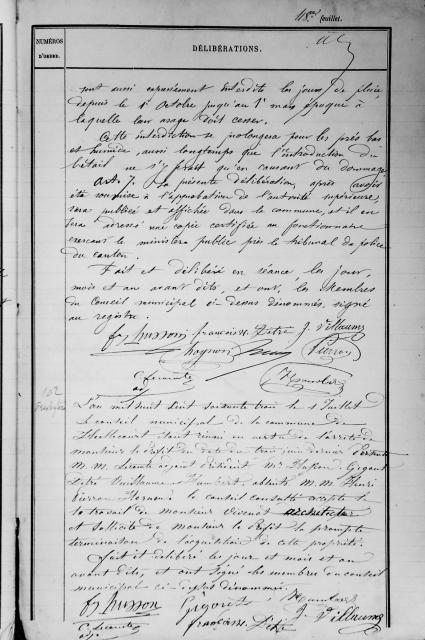 48me feuillet.
NUMÉROS D'ORDRE.
DÉLIBÉRATIONS.
sont aussi expressément interdits les jours de pluie,
depuis le 1er Octobre jusqu'au 1er mars époque à
laquelle leur usage doit cesser.
Cette interdiction se prolongera pour les prés bas
et humides, aussi longtemps que l'introduction du
bétail ne s'y ferait qu'en causant du dommage
Art. 7. La présente délibération, après avoir
été soumise à l'approbation de l'autorité supérieure,
sera publiée et affichée dans la commune, et il en
sera adressé une copie certifiée au fonctionnaire
exerçant le ministère public près le tribunal de police
du canton.
Fait et délibéré en séance, les jour,
mois et an avant dits, et ont, les Membres
du Conseil municipal ci-dessus dénommés, signé
au registre.
husson françois J. Villaume
hapson Pierron
C. Lecomte
102
L'an mil huit cent soixante trois le 1 Juillet
le conseil municipal de la commune de
étant réuni en vertu de l'arrêté de
monsieur le Préfet en date du trois juin dernier
M.M. Lecomte adjoint
Villaume Humbert, absents M.M. Henri
Pierron le conseil consulté accepte
le travail de Monsieur architecte
et sollicite de Monsieur le Préfet la prompte
terminaison de l'acquisition de cette propriété.
fait et délibéré les jour et mois et an
avant dits, et ont signé les membres du conseil
municipal ci-dessus dénommés
husson Humbert
C. Lecomte françois J. Villaume